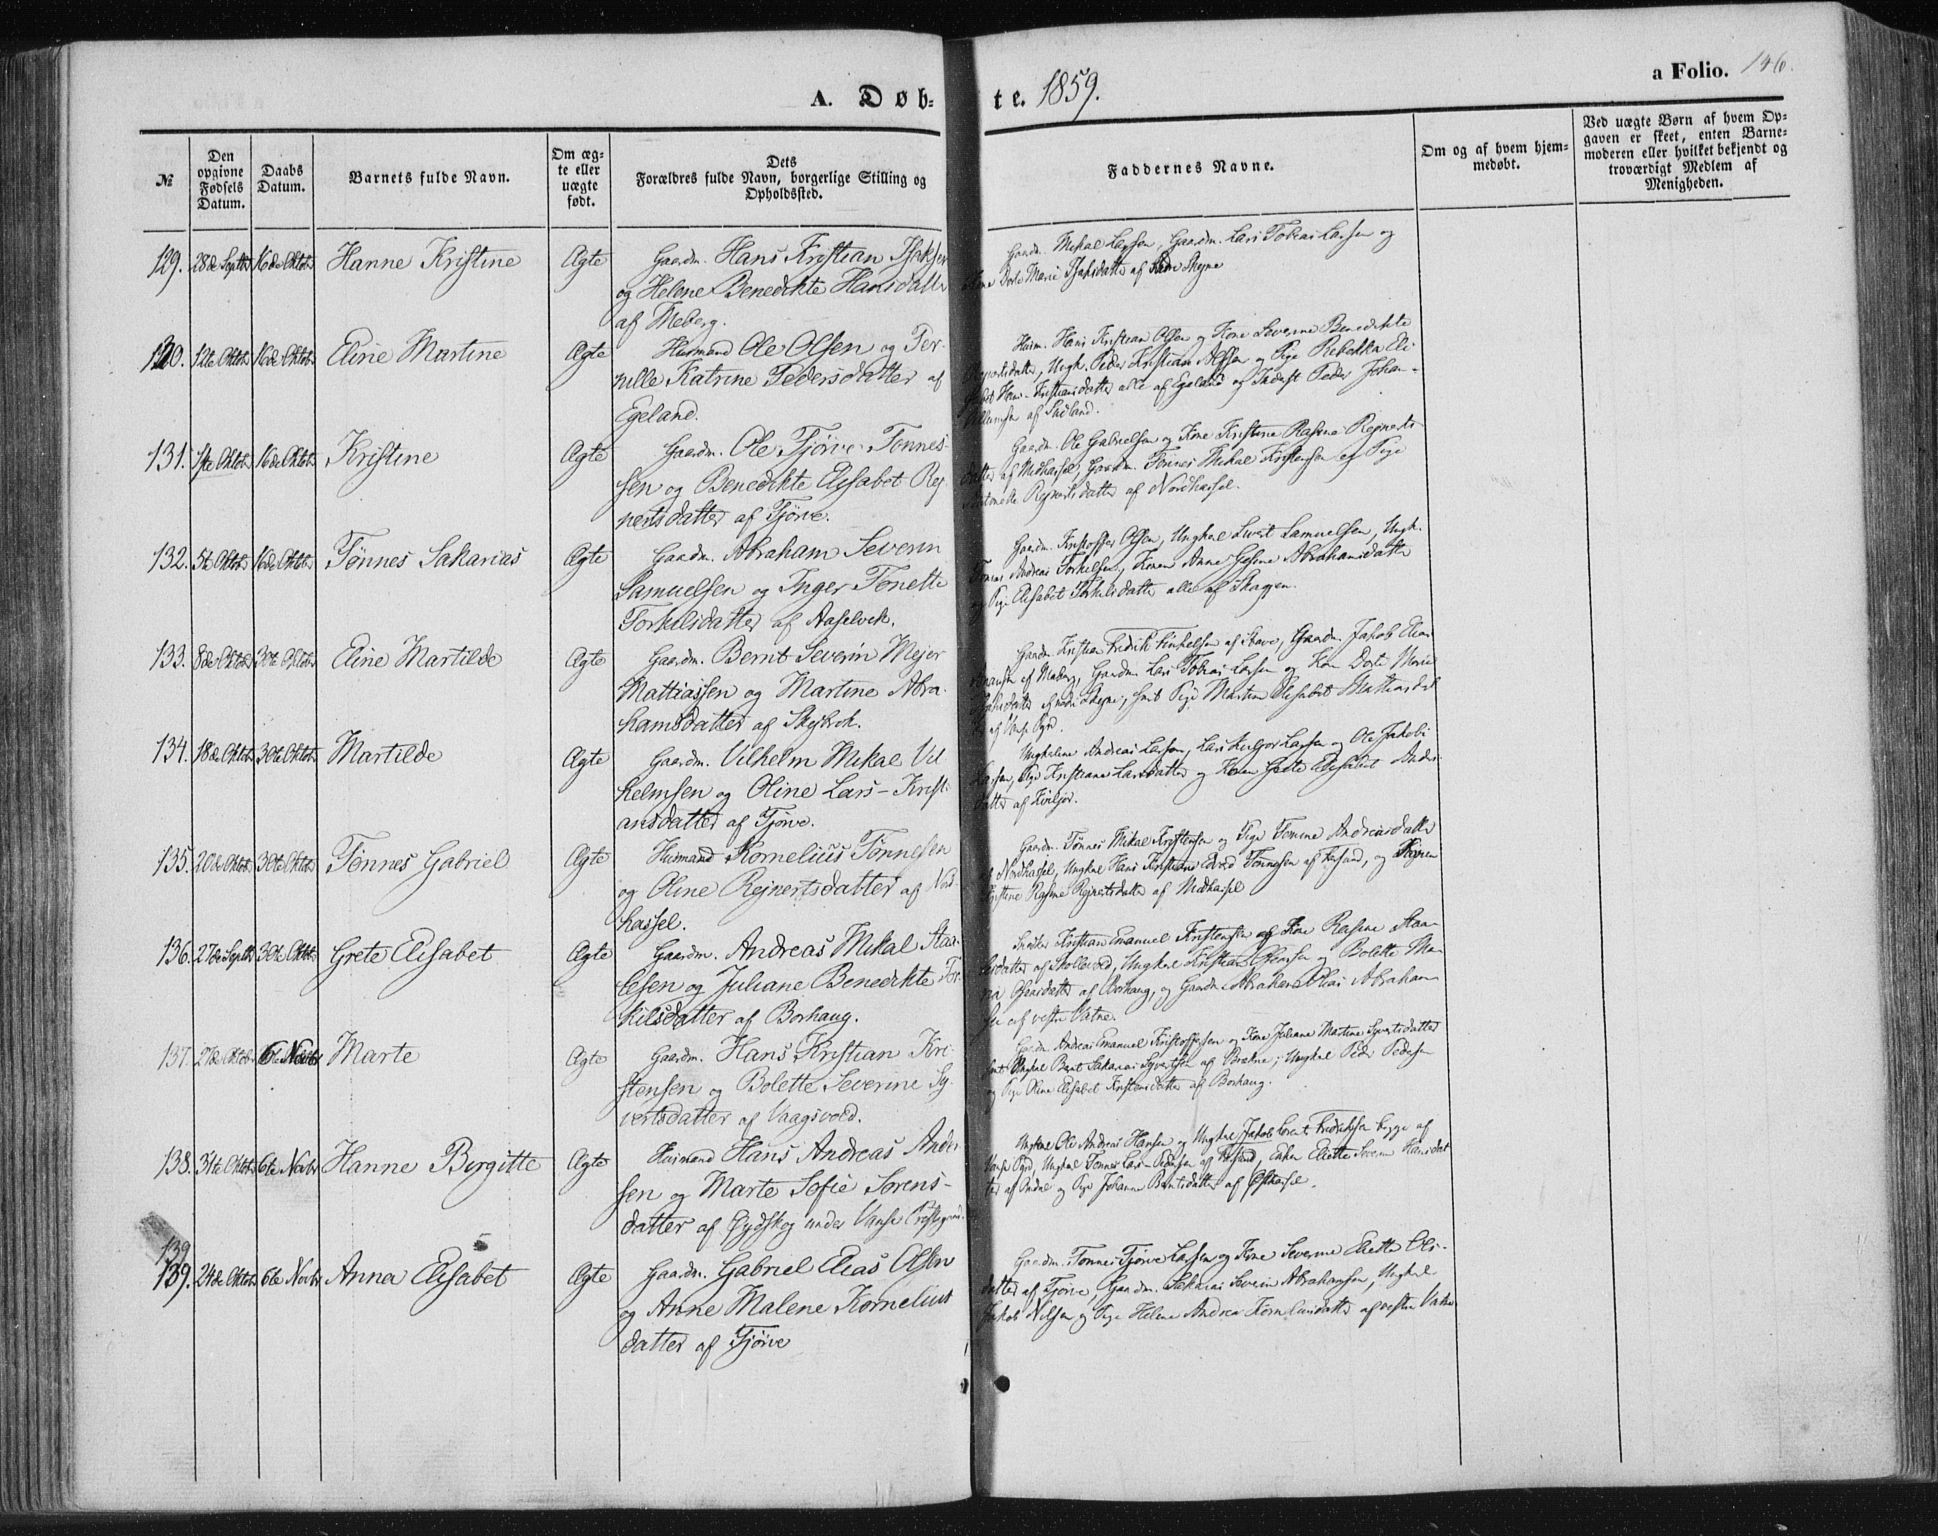 A. Døb=
te. 1859.
a Folio. 146.
№
Den opgivne Fødsels Datum.
Daabs Datum.
Barnets fulde Navn.
Om æg-
te eller
uægte
født.
Dets
Forældres fulde Navn, borgerlige Stilling og
Opholdssted.
Faddernes Navne.
Om og af hvem hjem-
medøbt.
Ved uægte Børn af hvem Op-
gaven er skeet, enten Barne-
moderen eller hvilket bekjendt og
troværdigt Medlem af
Menigheden.
129. 28de Septbr 16de Oktob. Hanne Kristine Ægte Gaardm. Hans Kristian Isaksen
og Helene Benedikte Hansdatter
af Meberg.
Gaardm. Mikal Larsen, Gaardm. Lars Tobias Larsen og
Kone Dorte Marie Isaksdatter af
130. 12te Oktob. 16de Oktob. Eline Martine Ægte Husmand Ole Olsen og Per-
nille Katrine Pedersdatter af
Egeland.
Husm. Hans Kristian Olsen og Kone Severine Benedikte
Ungk. Peder Kristian Olsen og Pige Rebekka Eli-
sabet Hans-Kristiansdatter alle af Egeland og Peder Johan-
131. 1ste Oktob. 16de Oktob. Kristine Ægte Gaardm. Ole Tjørve Tønnes-
sen og Benedikte Elisabet Rej
nertsdatter af Tjørve.
Gaardm. Ole Gabrielsen og Kone Kristine Rasine Rejnerts-
datter af Midhassel, Gaardm. Tønnes Mikal Kristensen og Pige
Rejnertsdatter af Nordhassel.
132. 5te Oktob. 16de Oktob. Tønnes Sakarias Ægte Gaardm. Abraham Severin
Samuelsen og Inger Tonette
Torkilsdatter af Aaselvik.
Gaardm. Kristoffer Olsen, Ungkarl Sivert Samuelsen, Ungk.
Tønnes Andreas Torkilsen, Konen Anne Gesine Abrahamsdatter
og Pige Elisabet Torkilsdatter alle af Skagen.
133. 8de Oktob. 30te Oktob. Eline Martilde Ægte Gaardm. Bernt Severin Mejer
Mattiassen og Martine Abra-
hamsdatter af Skejbrok.
Gaardm. Kristian Fredrik af Stave, Gaardm. Jakob Elias
af Meberg, Gaardm. Lars Tobias Larsen og Kone Dorte Marie
Isaksdatter af Pige Martine Elisabet Mathiasdat
134. 18de Oktob. 30te Oktob. Martilde Ægte Gaardm. Vilhelm Mikal Vil
helmsen og Oline Lars-Kristi
ansdatter af Tjørve.
Ungkarlene Andreas Larsen, Lars Larsen og Ole Jakob
Larsen, Pige Kristiane Larsdatter og Konen Grete Elisabet Anders-
datter af
135. 20de Oktob. 30te Oktob. Tønnes Gabriel Ægte Husmand Kornelius Tønnesen
og Oline Rejnertsdatter af Nord-
hassel.
Gaardm. Tønnes Mikal Kristensen og Pige Tomine Andreasdatter
af Nordhassel, Ungkarl Hans Kristian Edvard Tønnesen af Farsund, og Konen
Kristine Rasine Rejnertsdatter af Midhassel
136. 27de Septbr 30te Oktob. Grete Elisabet Ægte Gaardm. Andreas Mikal Staa-
lesen og Juliane Benedikte Tor
kilsdatter af Borhaug.
Kristian Emanuel Kristensen og Kone Rasine Staa-
lesdatter af Skollevold, Ungkarl Kristian og Bolette Ma-
af Borhaug, og Gaardm. Abraham Elias Abraham-
sen af vestre Vatne.
137. 27de Oktob. 6te Novbr Marte Ægte Gaardm. Hans Kristian Kri
stensen og Bolette Severine Sy-
vertsdatter af Vaagsvold.
Gaardm. Andreas Emanuel Kristoffersen og Kone Juliane Martine Syvertsdatter
samt Ungkarl Bernt Sakarias Syvertsen af Brekne; Ungkarl Peder Pedersen
og Pige Oline Elisabet Kristensdatter af Borhaug.
138. 31te Oktob. 6te Novbr Hanne Birgitte Ægte Husmand Hans Andreas Ander
sen og Marte Sofie Sørens-
datter af Øydskog under Vanse Præstegaard.
Ungkarl Ole Andreas Hansen og Ungkarl Jakob Lorents Fredriksen begge af
Vanse Ungkarl Tønnes Lars Pedersen af Farsund, Enken Eliette Severine Hansdat
ter af og Pige Johanne Berntsdatter af Østhassel.
139
139. 24de Oktob. 6te Novbr Anna Elisabet Ægte Gaardm. Gabriel Elias Olsen
og Anne Malene Kornelius
datter af Tjørve
Gaardm. Tønnes Tjørve Larsen og Kone Severine Eliette Ols-
datter af Tjørve, Gaardm. Sakarias Severin Abrahamsen, Ungkarl
Jakob Nilsen og Pige Helene Andrea Korneliusdatter af vestre Vatne